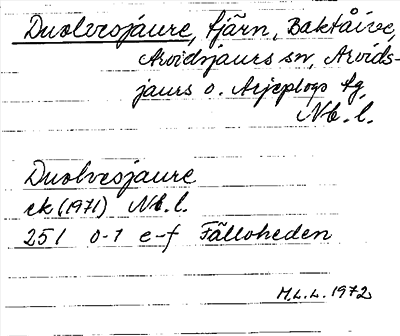 Duolvesjaure, tjärn, Baktåive,
Arvidsjaurs sn, Arvids-
jaurs o. Arjeplogs tg,
Nb. l.
Duolvesjaure
ek (1971) Nb. l.
25 I 0-1 e-f Fälloheden
M.L.L. 1972